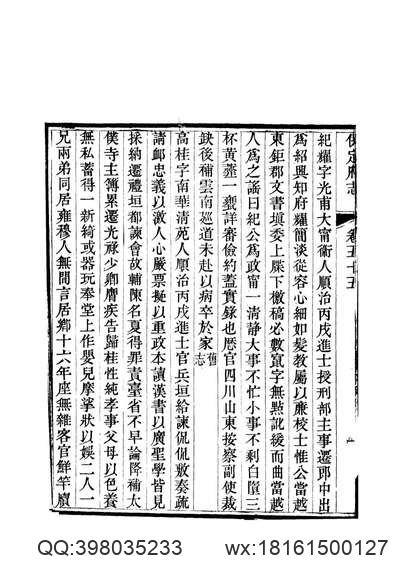 保定府志 卷五十五
紀耀字光甫大甯衛人順治丙戌進士授刑部主事遷郎中出
為紹興知府耀簡淡從容心細如髮教屬以廉棱士惟公當越
東鉅郡文書填委上屜下檄稿必數竄字無點訛緩而曲當越
人為之謠曰紀公為政甯一清靜大事不忙小事不剩白墮三
杯黃虀一甕詳審儉約蓋實錄也歷官四川山東按察副使裁
缺後補雲南廵道未赴以病卒於家 舊志
高桂字南華清苑人順治丙戌進士官兵垣給諫侃侃敷奏疏
請卹忠義以激人心嚴票擬以重政本讀漢書以廣聖學皆見
採納遷禮垣都諫會故輔陳名夏得罪責臺省不早論降補太
僕寺主簿累遷光祿少卿膺疾告歸桂性純孝事父母以色養
無私蓄得一新綺或器玩奉堂上作嬰兒摩挲狀以娛二人一
兄兩弟同居雍穆人無間言居鄉十六年座無雜客官鮮竿牘
QQ:398035233 wx:18161500127